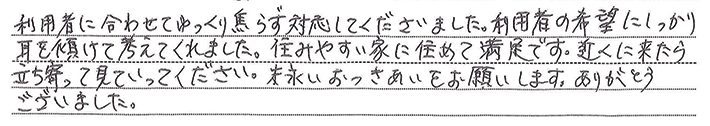 利用者に合わせてゆっくり焦らず対応してくださいました。利用者の希望にしっかり
耳を傾けて考えてくれました。住みやすい家に住めて満足です。近くに来たら
立ち寄って見ていってください。末永いおつきあいをお願いします。ありがとう
ございました。